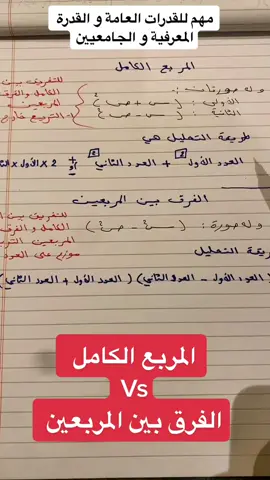 مهم للقدرات العامة و القدرة
المعرفية و الجامعيين
المربع الكامل
وله صورتان:-
الأولى: (س + ص)²
الثانية: (س - ص)²
للتفريق بين
الكامل والفرق
المربعين
التربيع خارج
طريقة التحليل هي
العدد الأول² + العدد الثاني² ± 2 × الأول × الثاني
الفرق بين المربعين
وله صورة: (س² - ص²)
للتفريق بين
الكامل و الفرق
المربعين
موزع على العدد
طريقة التحليل
(العدد الأول - العدد الثاني) (العدد الأول + العدد الثاني)
المربع الكامل
Vs
الفرق بين المربعين